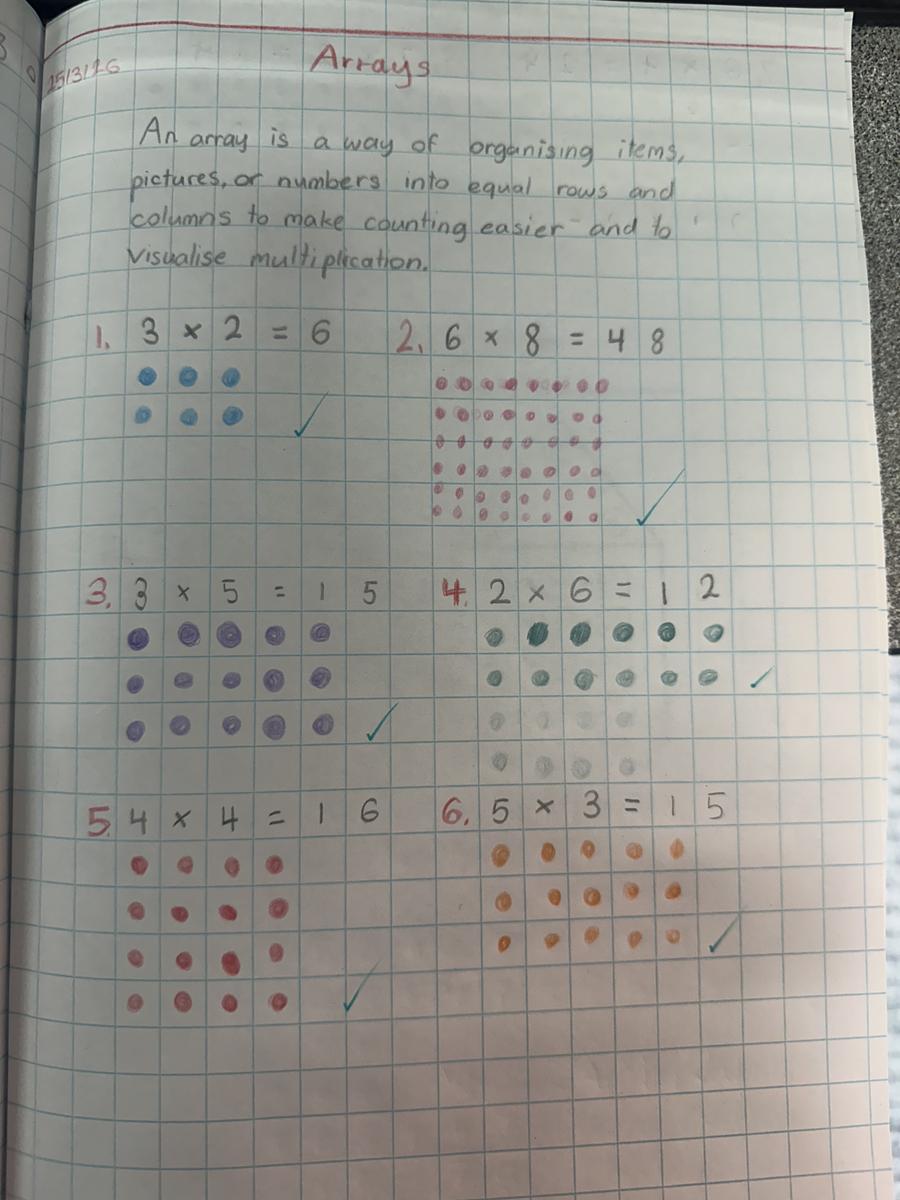 25/3/26
Arrays
An array is a way of organising items,
pictures, or numbers into equal rows and
columns to make counting easier and to
visualise multiplication.
1. 3 × 2 = 6
2. 6 × 8 = 48
3. 3 × 5 = 15
4. 2 × 6 = 12
5. 4 × 4 = 16
6. 5 × 3 = 15